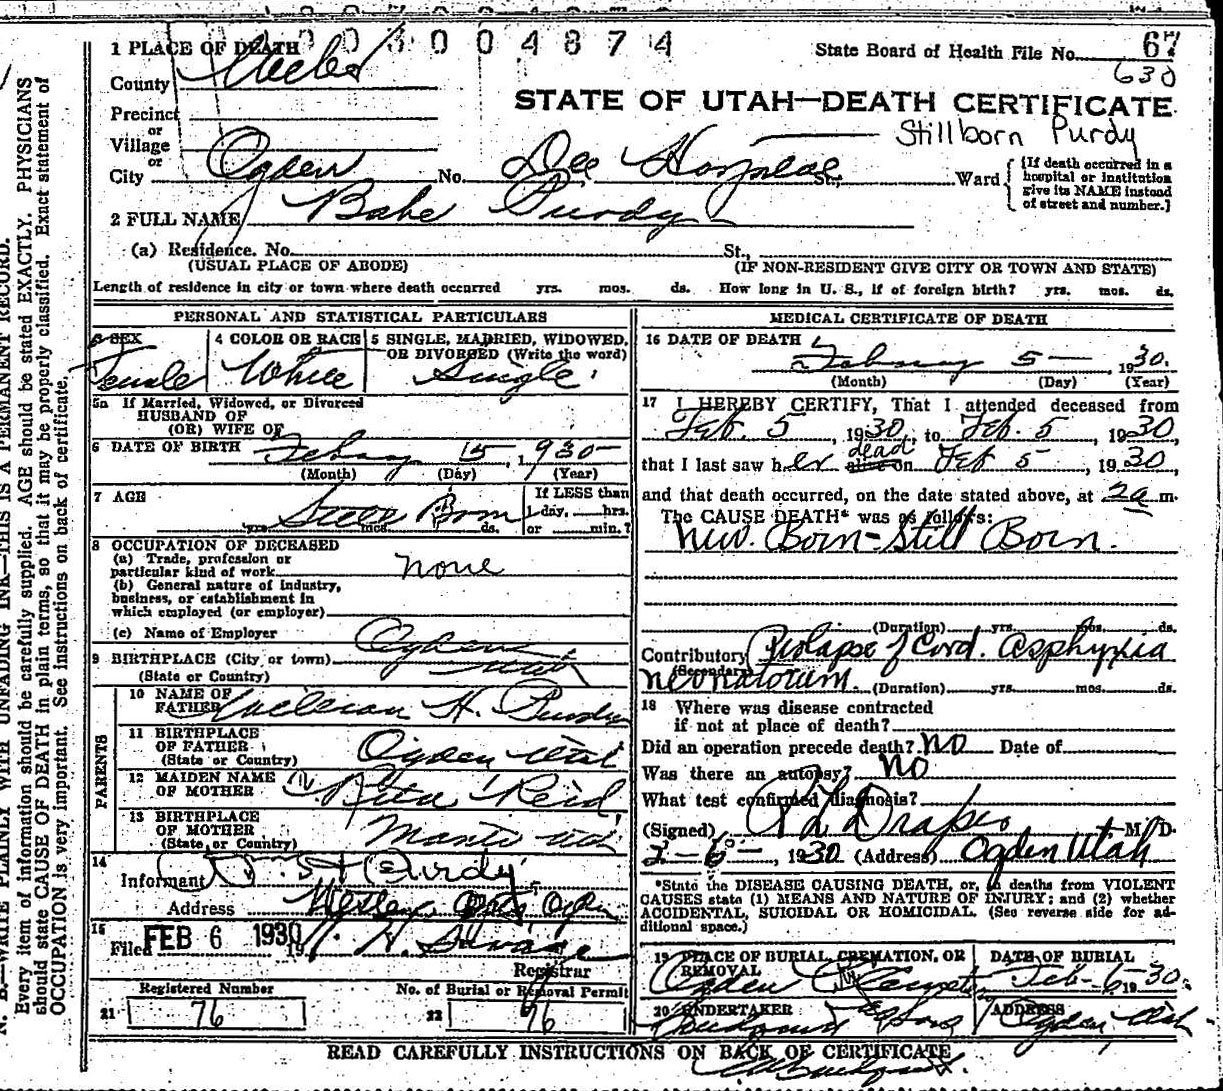 30004874
1 PLACE OF DEATH
State Board of Health File No. 67
630
County Weber
STATE OF UTAH—DEATH CERTIFICATE
Precinct
or
Stillborn Purdy
Village
or
City Ogden No. Dee Hospital St., Ward
[If death occurred in a hospital or institution give its NAME instead of street and number.]
2 FULL NAME Babe Purdy
(a) Residence. No. St.,
(USUAL PLACE OF ABODE) (IF NON-RESIDENT GIVE CITY OR TOWN AND STATE)
Length of residence in city or town where death occurred yrs. mos. ds. How long in U. S., if of foreign birth? yrs. mos. ds.
PERSONAL AND STATISTICAL PARTICULARS
3 SEX 4 COLOR OR RACE 5 SINGLE, MARRIED, WIDOWED, OR DIVORCED (Write the word)
Female White Single
5a If Married, Widowed, or Divorced
HUSBAND OF
(OR) WIFE OF
6 DATE OF BIRTH February 5, 1930
(Month) (Day) (Year)
7 AGE Still Born
yrs. mos. ds.
If LESS than
1 day, hrs.
or min.?
8 OCCUPATION OF DECEASED
(a) Trade, profession or
particular kind of work none
(b) General nature of industry,
business, or establishment in
which employed (or employer)
(c) Name of Employer
9 BIRTHPLACE (City or town) Ogden
(State or Country) Utah
PARENTS
10 NAME OF
FATHER William H. Purdy
11 BIRTHPLACE
OF FATHER
(State or Country) Ogden Utah
12 MAIDEN NAME
OF MOTHER Rita Reid
13 BIRTHPLACE
OF MOTHER
(State or Country) Manti Utah
14
Informant Wm. H Purdy
Address Ogden
15
Filed FEB 6 1930, 19
Registrar
Registered Number No. of Burial or Removal Permit
21 76 22 76
MEDICAL CERTIFICATE OF DEATH
16 DATE OF DEATH
February 5, 1930.
(Month) (Day) (Year)
17 I HEREBY CERTIFY, That I attended deceased from
Feb. 5, 1930, to Feb. 5, 1930,
that I last saw her alive dead on Feb 5, 1930,
and that death occurred, on the date stated above, at 2a m.
The CAUSE DEATH* was as follows:
New. Born - Still Born.
(Duration) yrs. mos. ds.
Contributory Prolapse of Cord. Asphyxia
(Secondary)
Neonatorum. (Duration) yrs. mos. ds.
18 Where was disease contracted
if not at place of death?
Did an operation precede death? No Date of
Was there an autopsy? No
What test confirmed diagnosis?
(Signed) Draper M. D.
2-6-, 1930 (Address) Ogden Utah
*State the DISEASE CAUSING DEATH, or, in deaths from VIOLENT
CAUSES state (1) MEANS AND NATURE OF INJURY; and (2) whether
ACCIDENTAL, SUICIDAL OR HOMICIDAL. (See reverse side for ad-
ditional space.)
19 PLACE OF BURIAL, CREMATION, OR REMOVAL DATE OF BURIAL
Ogden Feb-6 1930.
20 UNDERTAKER ADDRESS
Sons Ogden, Utah
READ CAREFULLY INSTRUCTIONS ON BACK OF CERTIFICATE
N. B.—WRITE PLAINLY WITH UNFADING INK—THIS IS A PERMANENT RECORD.
Every item of information should be carefully supplied. AGE should be stated EXACTLY. PHYSICIANS
should state CAUSE OF DEATH in plain terms, so that it may be properly classified. Exact statement of
OCCUPATION is very important. See instructions on back of certificate.